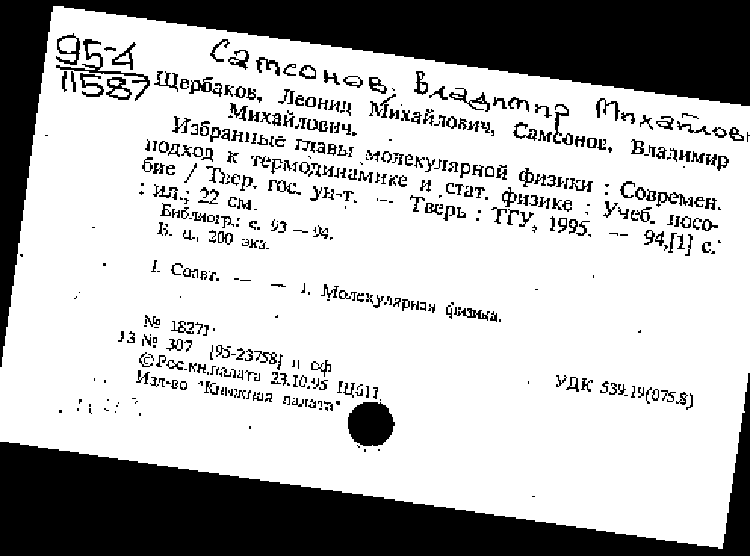 Самсонов, Владимир Михайлович
95-4
11587
Щербаков, Леонид Михайлович, Самсонов, Владимир
Михайлович.
Избранные главы молекулярной физики : Современ.
подход к термодинамике и стат. физике : Учеб. посо-
бие / Твер. гос. ун-т. — Тверь : ТГУ, 1995. — 94,[1] с.
: ил.; 22 см.
Библиогр.: с. 93 — 94.
Б. ц., 200 экз.
1. Соавт. — — 1. Молекулярная физика.
№ 18271
13 № 307 [95-23758] п оф
©Рос.кн.палата 23.10.95 Щ611
УДК 539.19(075.8)
Изд-во "Книжная палата"